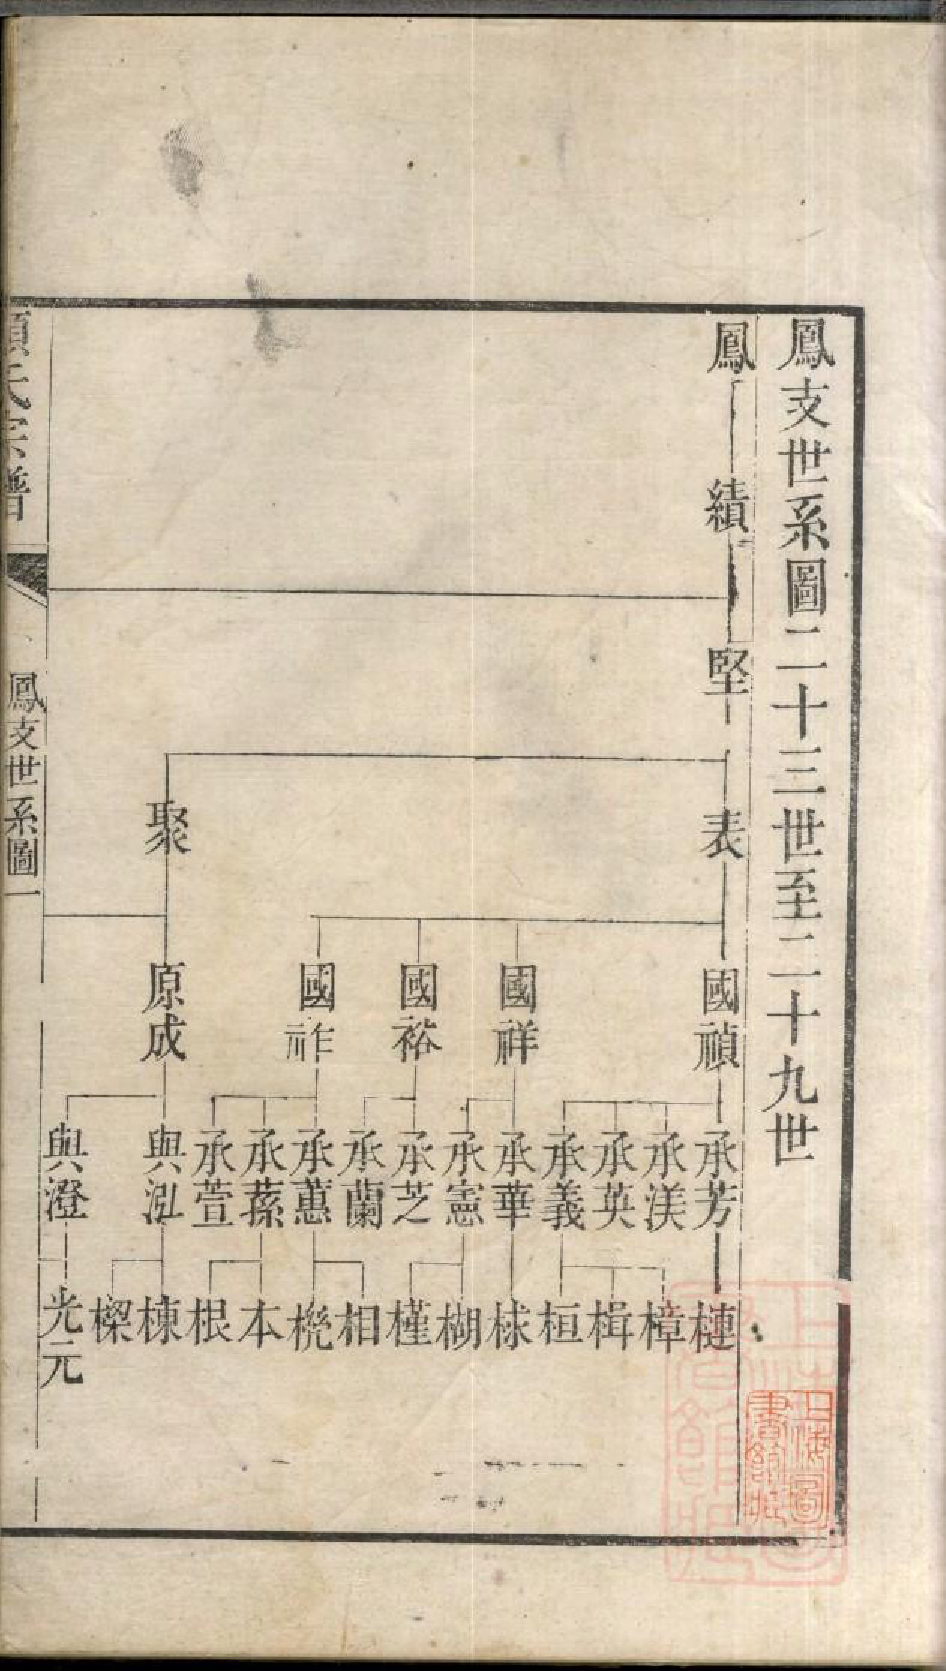 鳳支世系圖二十三世至二十九世
鳳
績
堅
表
聚
國禎
國祥
國裕
國祚
原成
承芳
承渼
承英
承義
承華
承憲
承芝
承蘭
承蕙
承蓀
承萱
與泓
與澄
槤
樟
楫
桓
梂
楜
槿
相
橈
本
根
棟
樑
光元
氏宗譜
鳳支世系圖一
上海圖書館藏
上海圖書館藏